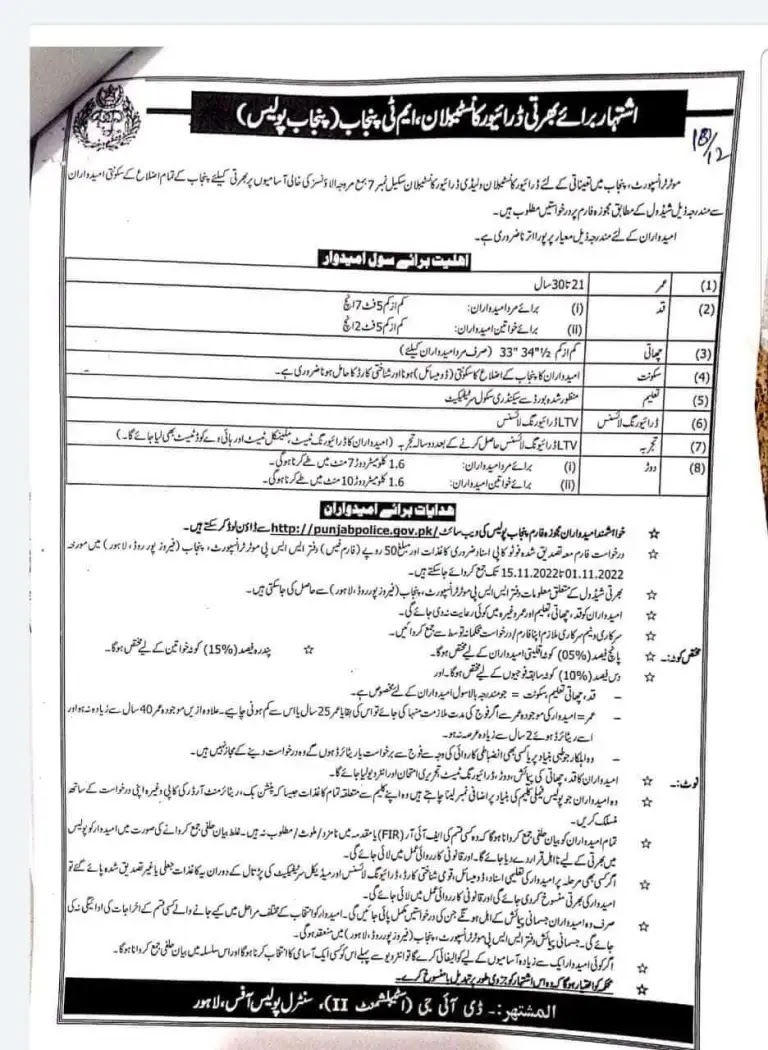 اشتہار برائے بھرتی ڈرائیور کانسٹیبلان، ایم ٹی پنجاب (پنجاب پولیس)
18/12
موٹر ٹرانسپورٹ، پنجاب میں تعیناتی کے لئے ڈرائیور کانسٹیبلان و لیڈی ڈرائیور کانسٹیبلان سکیل نمبر 7 بمع مروجہ الاؤنسز کی خالی آسامیوں پر بھرتی کیلئے پنجاب کے تمام اضلاع کے سکونتی امیدواران
سے مندرجہ ذیل شیڈول کے مطابق مجوزہ فارم پر درخواستیں مطلوب ہیں۔
امیدواران کے لئے مندرجہ ذیل معیار پر پورا اترنا ضروری ہے۔
اہلیت برائے سول امیدوار
(1) عمر 21 تا 30 سال
(2) قد (i) برائے مرد امیدواران: کم از کم 5 فٹ 7 انچ
(ii) برائے خواتین امیدواران: کم از کم 5 فٹ 2 انچ
(3) چھاتی کم از کم 33" 34½" (صرف مرد امیدواران کیلئے)
(4) سکونت امیدواران کا پنجاب کے اضلاع کا سکونتی (ڈومیسائل) ہونا اور شناختی کارڈ کا حامل ہونا ضروری ہے۔
(5) تعلیم منظور شدہ بورڈ سے سیکنڈری سکول سرٹیفکیٹ
(6) ڈرائیونگ لائسنس LTV ڈرائیونگ لائسنس
(7) تجربہ LTV ڈرائیونگ لائسنس حاصل کرنے کے بعد دو سالہ تجربہ (امیدواران کا ڈرائیونگ ٹیسٹ، مکینیکل ٹیسٹ اور ہائی وے کوڈ ٹیسٹ بھی لیا جائے گا۔)
(8) دوڑ (i) برائے مرد امیدواران: 1.6 کلومیٹر دوڑ 7 منٹ میں طے کرنا ہوگی۔
(ii) برائے خواتین امیدواران: 1.6 کلومیٹر دوڑ 10 منٹ میں طے کرنا ہوگی۔
ہدایات برائے امیدواران
☆ خواہشمند امیدواران مجوزہ فارم پنجاب پولیس کی ویب سائٹ http://punjabpolice.gov.pk/ سے ڈاؤن لوڈ کر سکتے ہیں۔
☆ درخواست فارم معہ تصدیق شدہ فوٹو کاپی اسناد ضروری کاغذات اور مبلغ 50 روپے (فارم فیس) دفتر ایس ایس پی موٹر ٹرانسپورٹ، پنجاب (فیروز پور روڈ، لاہور) میں مورخہ
01.11.2022 تا 15.11.2022 تک جمع کروائے جا سکتے ہیں۔
☆ بھرتی شیڈول کے متعلق معلومات دفتر ایس ایس پی موٹر ٹرانسپورٹ، پنجاب (فیروز پور روڈ، لاہور) سے حاصل کی جا سکتی ہیں۔
☆ امیدواران کو قد، چھاتی، تعلیم اور عمر وغیرہ میں کوئی رعایت نہ دی جائے گی۔
☆ سرکاری و نیم سرکاری ملازم اپنا فارم / درخواست محکمانہ توسط سے جمع کروائیں۔
مختص کوٹہ:۔ ☆ پانچ فیصد (05%) کوٹہ اقلیتی امیدواران کے لیے مختص ہوگا۔ ☆ پندرہ فیصد (15%) کوٹہ خواتین کے لیے مختص ہوگا۔
☆ دس فیصد (10%) کوٹہ سابقہ فوجیوں کے لیے مختص ہوگا۔ اور
– قد، چھاتی، تعلیم، سکونت = جو مندرجہ بالا سول امیدواران کے لئے مخصوص ہے۔
– عمر = امیدوار کی موجودہ عمر سے اگر فوج کی مدت ملازمت منہا کی جائے تو اس کی بقایا عمر 25 سال یا اس سے کم ہونی چاہیے۔ علاوہ ازیں موجودہ عمر 40 سال سے زیادہ نہ ہو اور
اسے ریٹائرڈ ہوئے 2 سال سے زیادہ عرصہ نہ ہو۔
– وہ اہلکار جو طبی بنیاد پر یا کسی بھی انضباطی کاروائی کی وجہ سے فوج سے برخواست یا ریٹائرڈ ہوں گے وہ درخواست دینے کے مجاز نہیں ہیں۔
نوٹ:۔ ☆ امیدواران کا قد، چھاتی کی پیمائش، دوڑ، ڈرائیونگ ٹیسٹ، تحریری امتحان اور انٹرویو لیا جائے گا۔
☆ وہ امیدواران جو پولیس فیملی کلیم کی بنیاد پر اضافی نمبر لینا چاہتے ہیں وہ اپنے کلیم سے متعلقہ تمام کاغذات جیسا کہ پنشن بک، ریٹائرمنٹ آرڈر کی کاپی وغیرہ اپنی درخواست کے ساتھ
منسلک کریں۔
☆ تمام امیدواران کو بیان حلفی جمع کروانا ہوگا کہ وہ کسی قسم کی ایف آئی آر (FIR) یا مقدمہ میں نامزد / ملوث / مطلوب نہ ہیں۔ غلط بیان حلفی جمع کروانے کی صورت میں امیدوار کو پولیس
میں بھرتی کے لیے نااہل قرار دے دیا جائے گا۔ اور قانونی کارروائی عمل میں لائی جائے گی۔
☆ اگر کسی بھی مرحلہ پر امیدوار کی تعلیمی اسناد، ڈومیسائل، قومی شناختی کارڈ، ڈرائیونگ لائسنس اور میڈیکل سرٹیفکیٹ کی پڑتال کے دوران یہ کاغذات جعلی یا غیر تصدیق شدہ پائے گئے تو
امیدوار کی بھرتی منسوخ کر دی جائے گی اور قانونی کارروائی عمل میں لائی جائے گی۔
☆ صرف وہ امیدواران جسمانی پیمائش کے اہل ہونگے جن کی درخواستیں مکمل پائی جائیں گی۔ امیدوار کو انتخاب کے مختلف مراحل میں کیے جانے والے کسی قسم کے اخراجات کی ادائیگی نہ کی
جائے گی۔ جسمانی پیمائش دفتر ایس ایس پی موٹر ٹرانسپورٹ، پنجاب (فیروز پور روڈ، لاہور) میں منعقد ہوگی۔
☆ اگر کوئی امیدوار ایک سے زیادہ آسامیوں کے لیے کوالیفائی کرے گا تو انٹرویو سے پہلے اس کو کسی ایک آسامی کا انتخاب کرنا ہوگا اور اس سلسلہ میں بیان حلفی جمع کروانا ہوگا۔
☆ محکمہ کو اختیار ہوگا کہ وہ اس اشتہار کو جزوی طور پر تبدیل یا منسوخ کرے۔
المشتہر:۔ ڈی آئی جی (اسٹیبلشمنٹ II)، سنٹرل پولیس آفس، لاہور